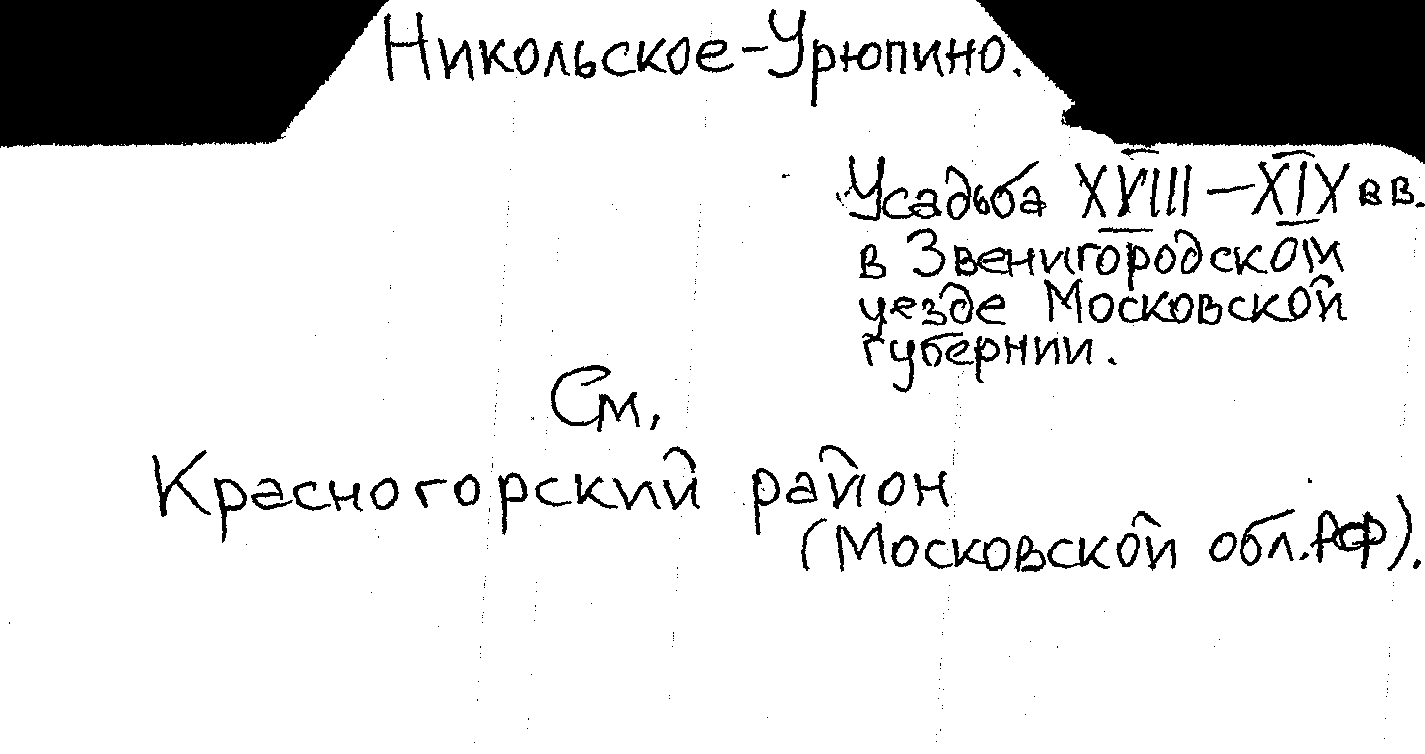 Никольское-Урюпино.
Усадьба XVIII – XIX вв.
в Звенигородском
уезде Московской
губернии.
См.
Красногорский район
(Московской обл. РФ).